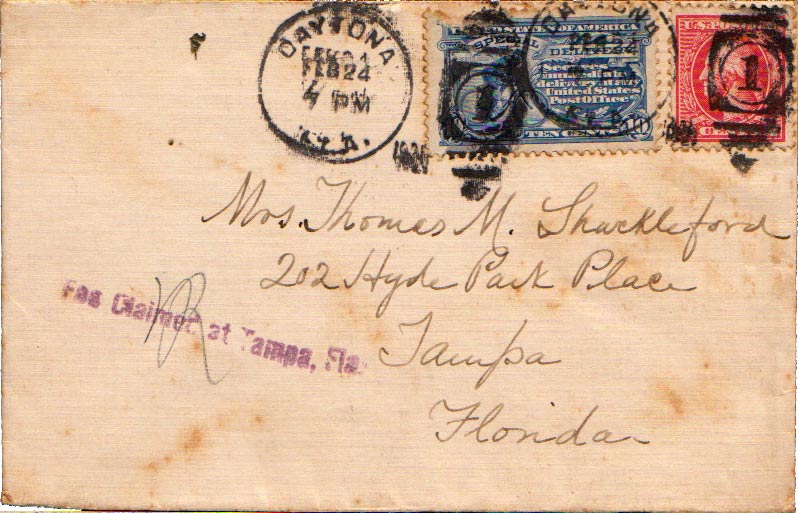 DAYTONA
FEB 24
4 PM
FLA.
UNITED STATES OF AMERICA
SPECIAL DELIVERY
Secures
Immediate
Delivery at any
United States
Post Office
TEN CENTS 10
1
DAYTONA
U.S. POSTAGE
1
CENTS
Mrs. Thomas M. Shackleford
202 Hyde Park Place
Tampa
Florida
Fee Claimed at Tampa, Fla.